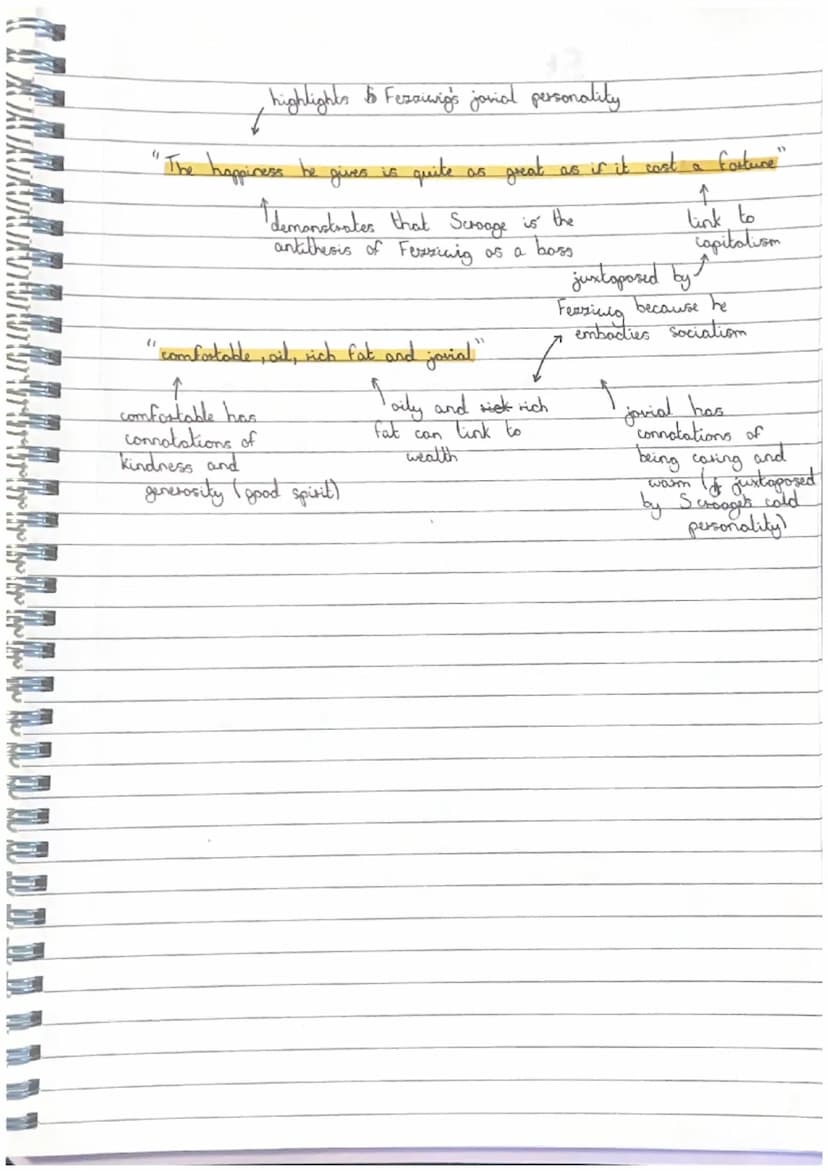 highlights Fezziwig's jovial personality
"The happiness he gives is quite as great as if it cost a fortune"
demonstrates that Scrooge is the
antithesis of Fezziwig as a boss
link to
capitalism
juxtaposed by
Fezziwig because he
embodies socialism
"comfortable, oil, rich fat and jovial"
comfortable has
connotations of
kindness and
generosity (good spirit)
oily and rich
fat can link to
wealth
jovial has
connotations of
being caring and
warm (juxtaposed
by Scrooge's cold
personality)